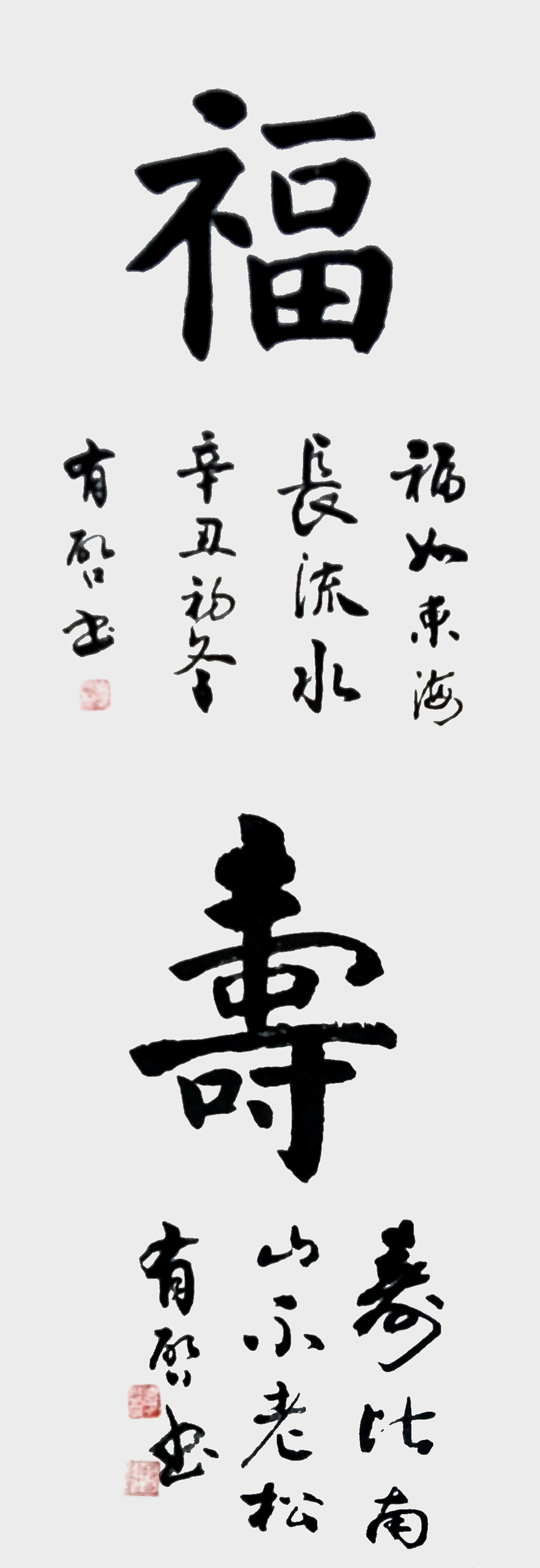 福
福如東海
長流水
辛丑初冬
有啓书
壽
寿比南
山不老松
有啓书